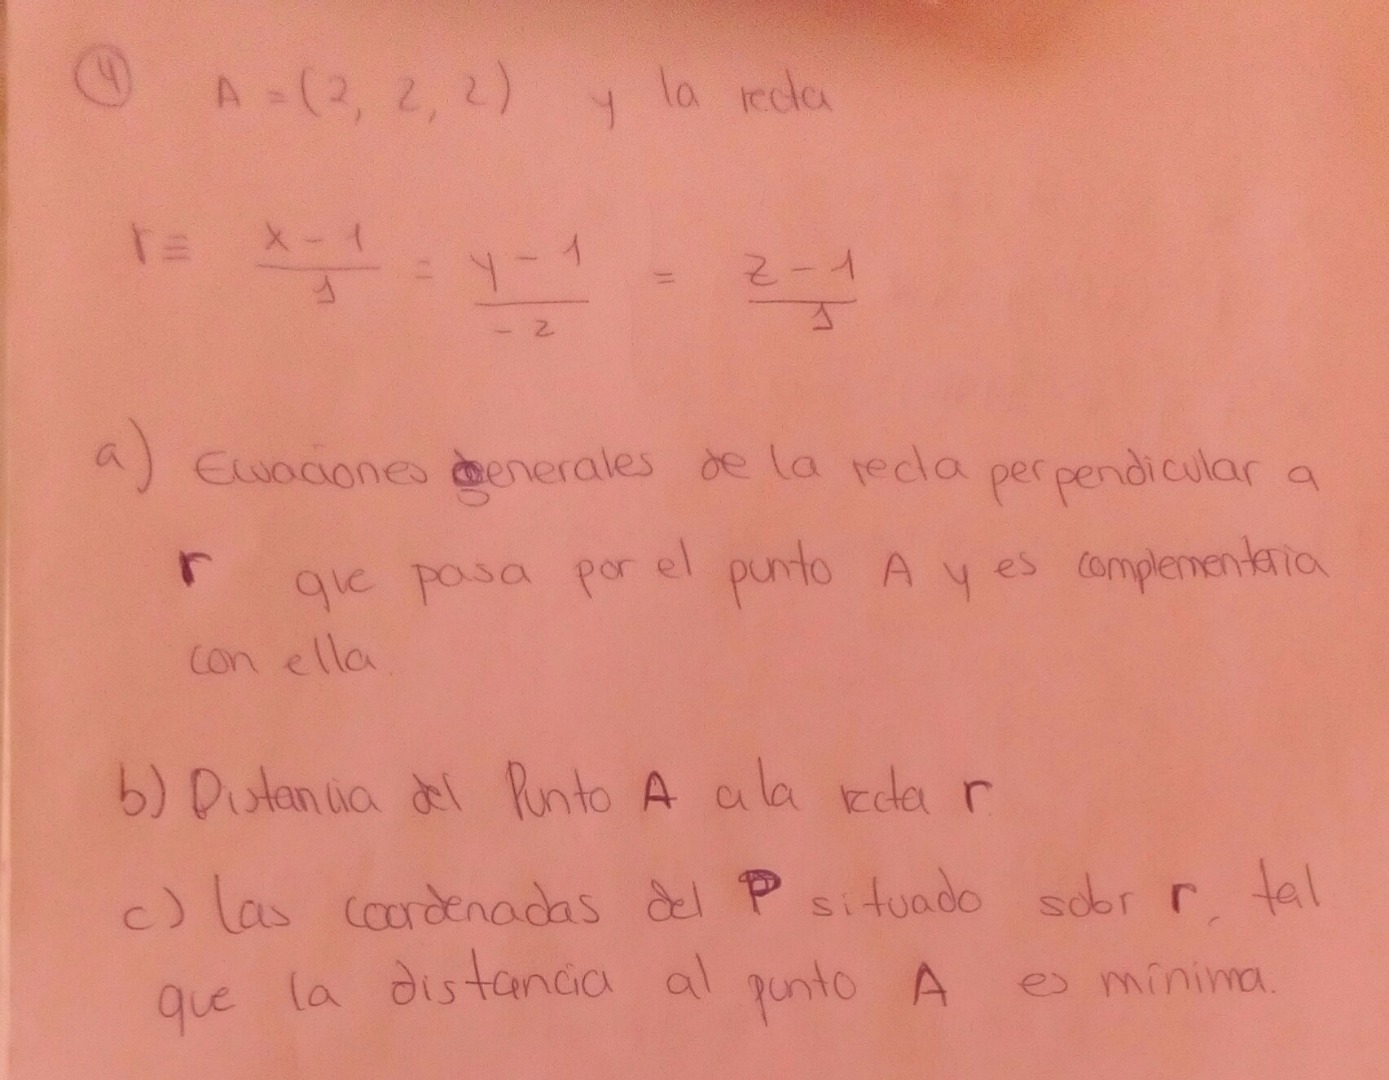 ④ A = (2, 2, 2) y la recta
r ≡ x - 1 / 1 = y - 1 / -2 = z - 1 / 1
a) Ecuaciones generales de la recta perpendicular a
r que pasa por el punto A y es complementaria
con ella.
b) Distancia del Punto A a la recta r
c) las coordenadas del P situado sobr r, tal
que la distancia al punto A es mínima.